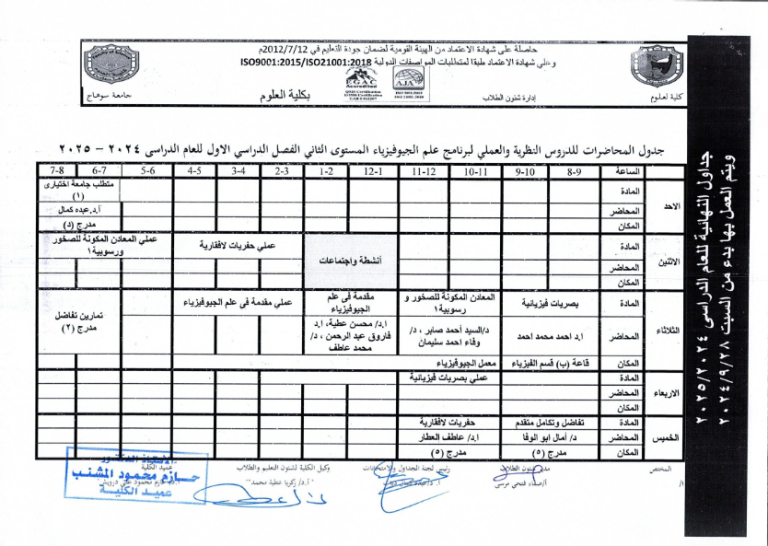 حاصلة على شهادة الاعتماد من الهيئة القومية لضمان جودة التعليم في 2012/7/12م
وعلى شهادة الاعتماد طبقا لمتطلبات المواصفات الدولية ISO9001:2015/ISO21001:2018
EGAC
AJA
كلية لعلوم
إدارة شئون الطلاب
بكلية العلوم
جامعة سوهاج
جدول المحاضرات للدروس النظرية والعملي لبرنامج علم الجيوفيزياء المستوى الثاني الفصل الدراسي الاول للعام الدراسى ٢٠٢٤ – ٢٠٢٥
الساعة 8-9 9-10 10-11 11-12 12-1 1-2 2-3 3-4 4-5 5-6 6-7 7-8
الاحد
المادة متطلب جامعة اختيارى (١)
المحاضر أ.د.عبده كمال
المكان مدرج (د)
الاثنين
المادة أنشطة واجتماعات عملي حفريات لافقارية عملي المعادن المكونة للصخور ورسوبية١
المحاضر
المكان
الثلاثاء
المادة بصريات فيزيائية المعادن المكونة للصخور و رسوبية١ مقدمة فى علم الجيوفيزياء عملي مقدمة فى علم الجيوفيزياء تمارين تفاضل مدرج (٢)
المحاضر ا.د احمد محمد احمد د/السيد أحمد صابر ، د/ وفاء احمد سليمان ا.د/ محسن عطية، ا.د فاروق عبد الرحمن ، د/ محمد عاطف
المكان قاعة (ب) قسم الفيزياء معمل الجيوفيزياء
الاربعاء
المادة عملي بصريات فيزيائية
المحاضر
المكان
الخميس
المادة تفاضل وتكامل متقدم حفريات لافقارية
المحاضر د/ أمال ابو الوفا ا.د/ عاطف العطار
المكان مدرج (٥) مدرج (٥)
المختص
مدير شئون الطلاب
رئيس لجنة الجداول والامتحانات
وكيل الكلية لشئون التعليم والطلاب
عميد الكلية
أ/صفاء فتحى مرسى
أ.د/ زكريا عطية محمد
الأستاذ الدكتور
حازم محمود المشنب
عميد الكلية
جداول النهائية للعام الدراسى ٢٠٢٥/٢٠٢٤
ويتم العمل بها بدء من السبت ٢٠٢٤/٩/٢٨